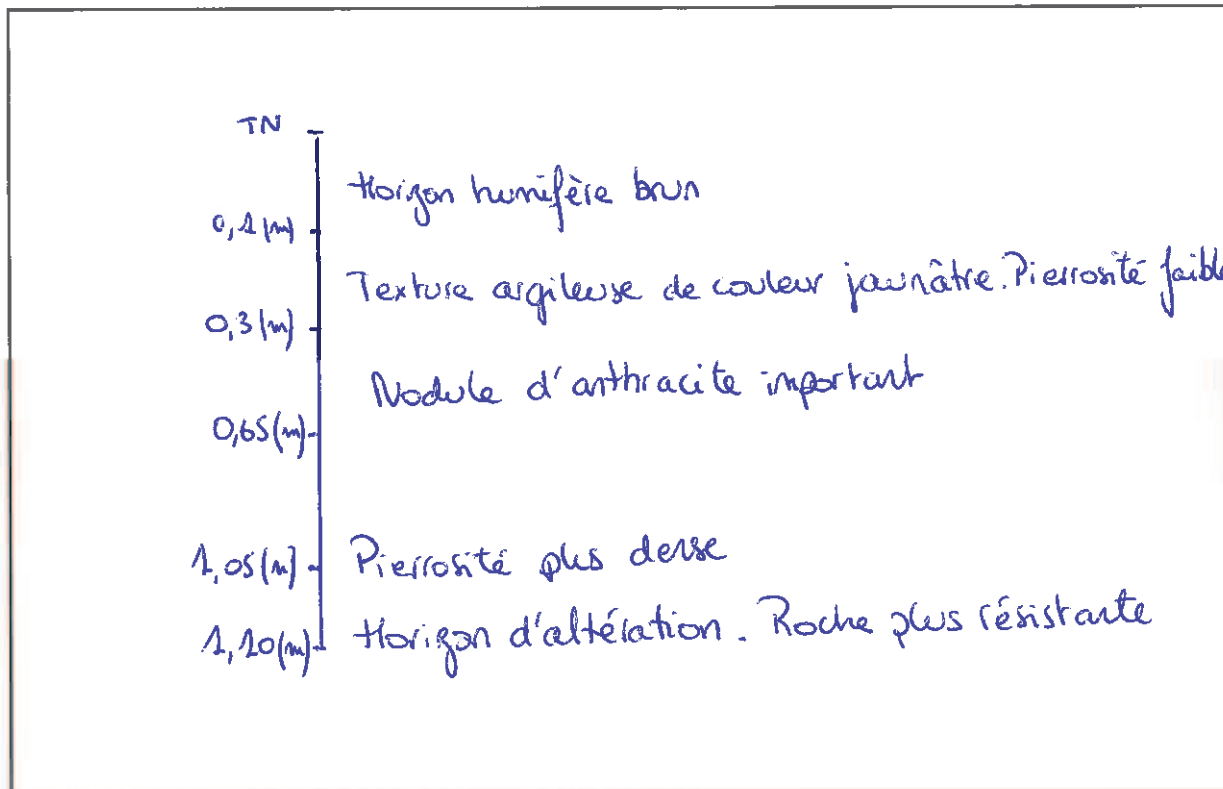 TN
Horizon humifère brun
0,1(m)
Texture argileuse de couleur jaunâtre. Pierrosité faible
0,3(m)
Nodule d'anthracite important
0,65(m)
1,05(m) Pierrosité plus dense
1,10(m) Horizon d'altération. Roche plus résistante